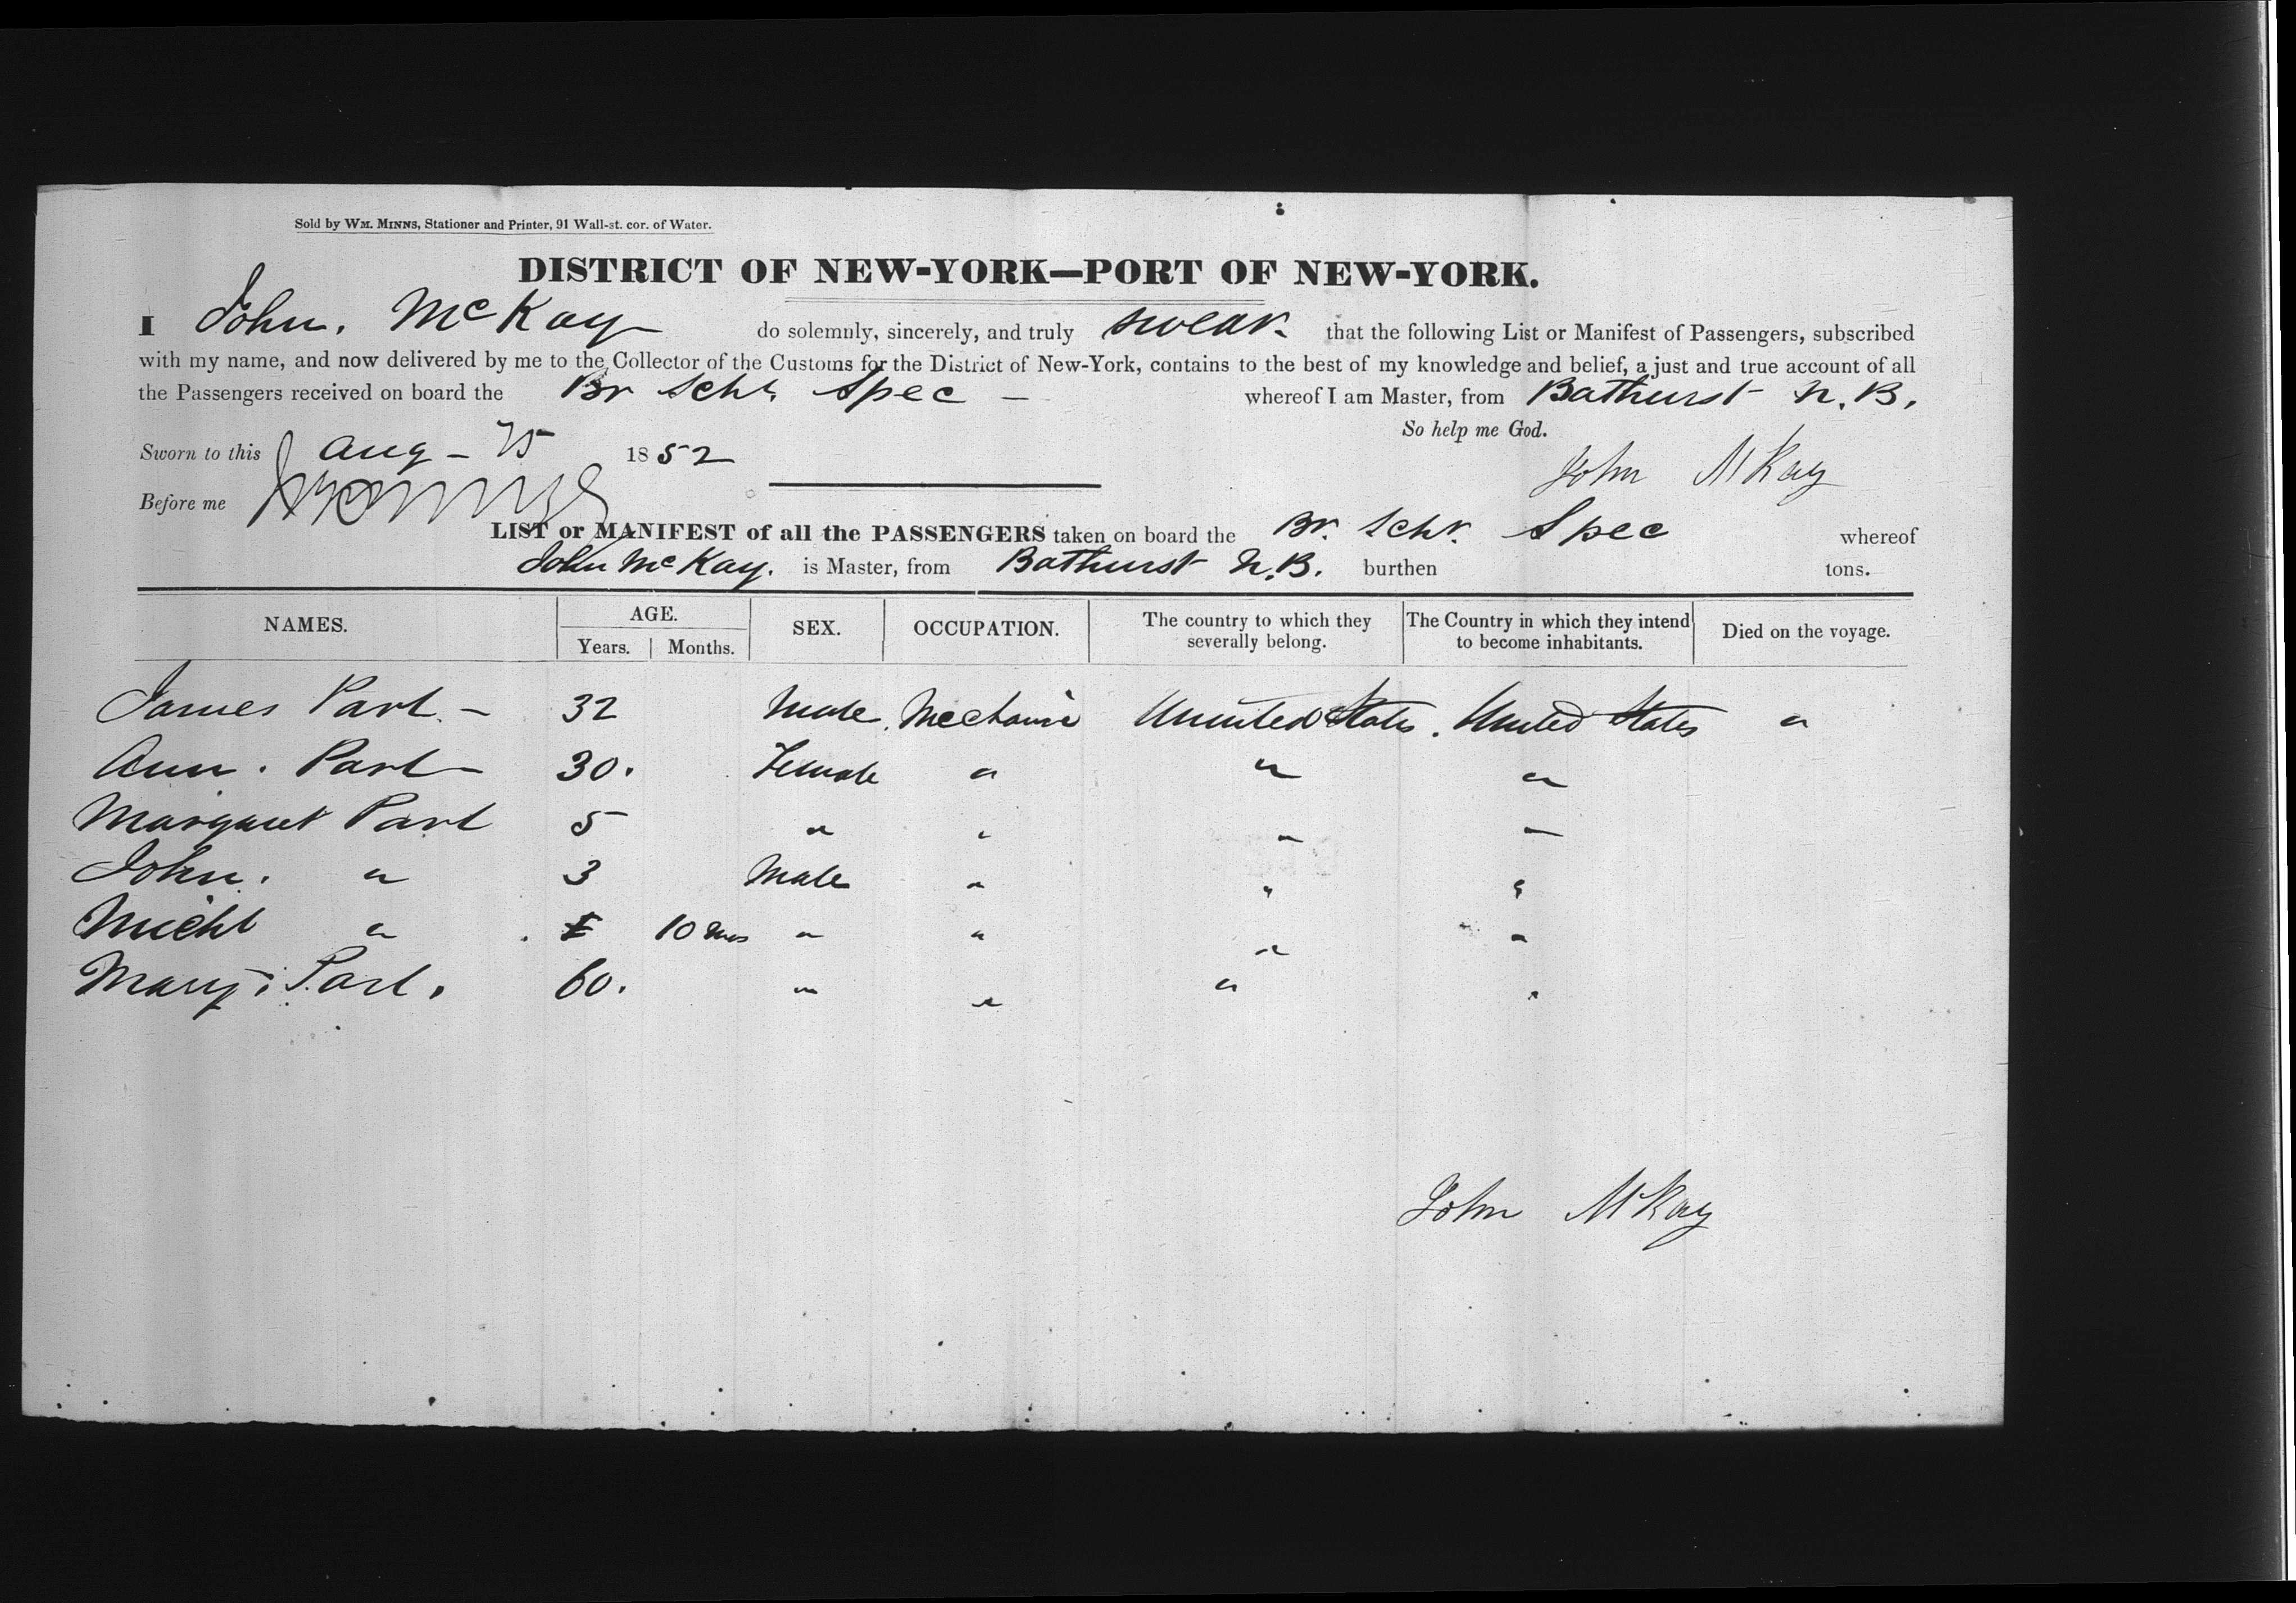 Sold by WM. MINNS, Stationer and Printer, 91 Wall-st. cor. of Water.
DISTRICT OF NEW-YORK—PORT OF NEW-YORK.
I John. McKay do solemnly, sincerely, and truly swear. that the following List or Manifest of Passengers, subscribed
with my name, and now delivered by me to the Collector of the Customs for the District of New-York, contains to the best of my knowledge and belief, a just and true account of all
the Passengers received on board the Br Schr. Spec — whereof I am Master, from Bathurst N.B.
So help me God.
Sworn to this Aug - 1852
John McKay
Before me
LIST or MANIFEST of all the PASSENGERS taken on board the Br. Schr. Spec whereof
John McKay. is Master, from Bathurst N.B. burthen tons.
NAMES. AGE. Years. Months. SEX. OCCUPATION. The country to which they severally belong. The Country in which they intend to become inhabitants. Died on the voyage.
James Part. - 32 Male. Mechanic Uunited States. United States "
Ann. Part - 30. Female " " "
Margaret Part 5 " " " "
John. " 3 Male " " "
Michl " 10 mos " " " "
Mary. Part. 60. " " " "
John McKay